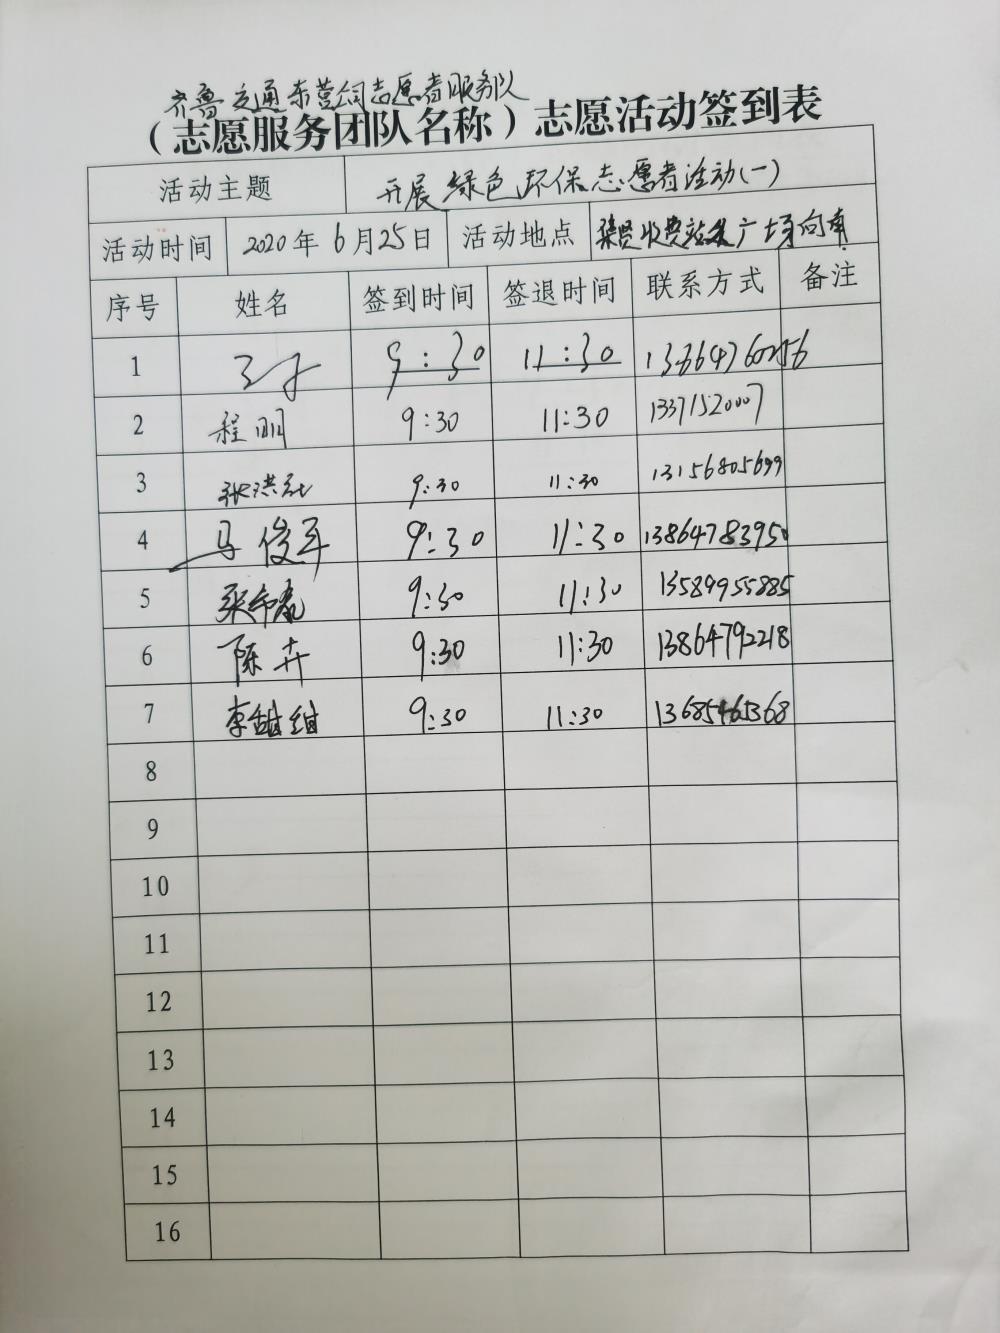 齐鲁交通东营分公司志愿者服务队
（志愿服务团队名称）志愿活动签到表
活动主题 开展绿色环保志愿者活动（一）
活动时间 2020年6月25日 活动地点 收费站 广场向南
序号 姓名 签到时间 签退时间 联系方式 备注
1 9:30 11:30
2 程明 9:30 11:30 13371520007
3 张洪 9:30 11:30 13156805699
4 马俊军 9:30 11:30 13864783950
5 9:30 11:30 13589955885
6 陈卉 9:30 11:30 13864792218
7 李甜甜 9:30 11:30 13685465368
8
9
10
11
12
13
14
15
16